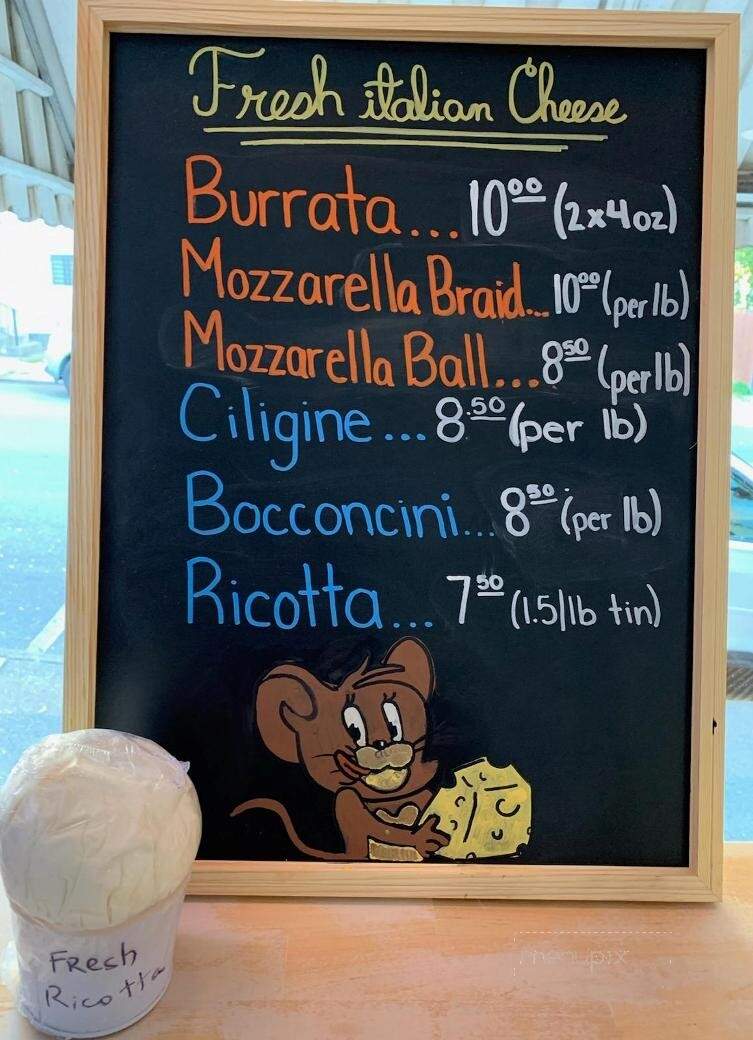 Fresh italian Cheese
Burrata... 10⁰⁰ (2x4oz)
Mozzarella Braid... 10⁰⁰ (per lb)
Mozzarella Ball... 8⁵⁰ (per lb)
Ciligine... 8.⁵⁰ (per lb)
Bocconcini... 8⁵⁰ (per lb)
Ricotta... 7⁵⁰ (1.5/lb tin)
Fresh
Ricotta